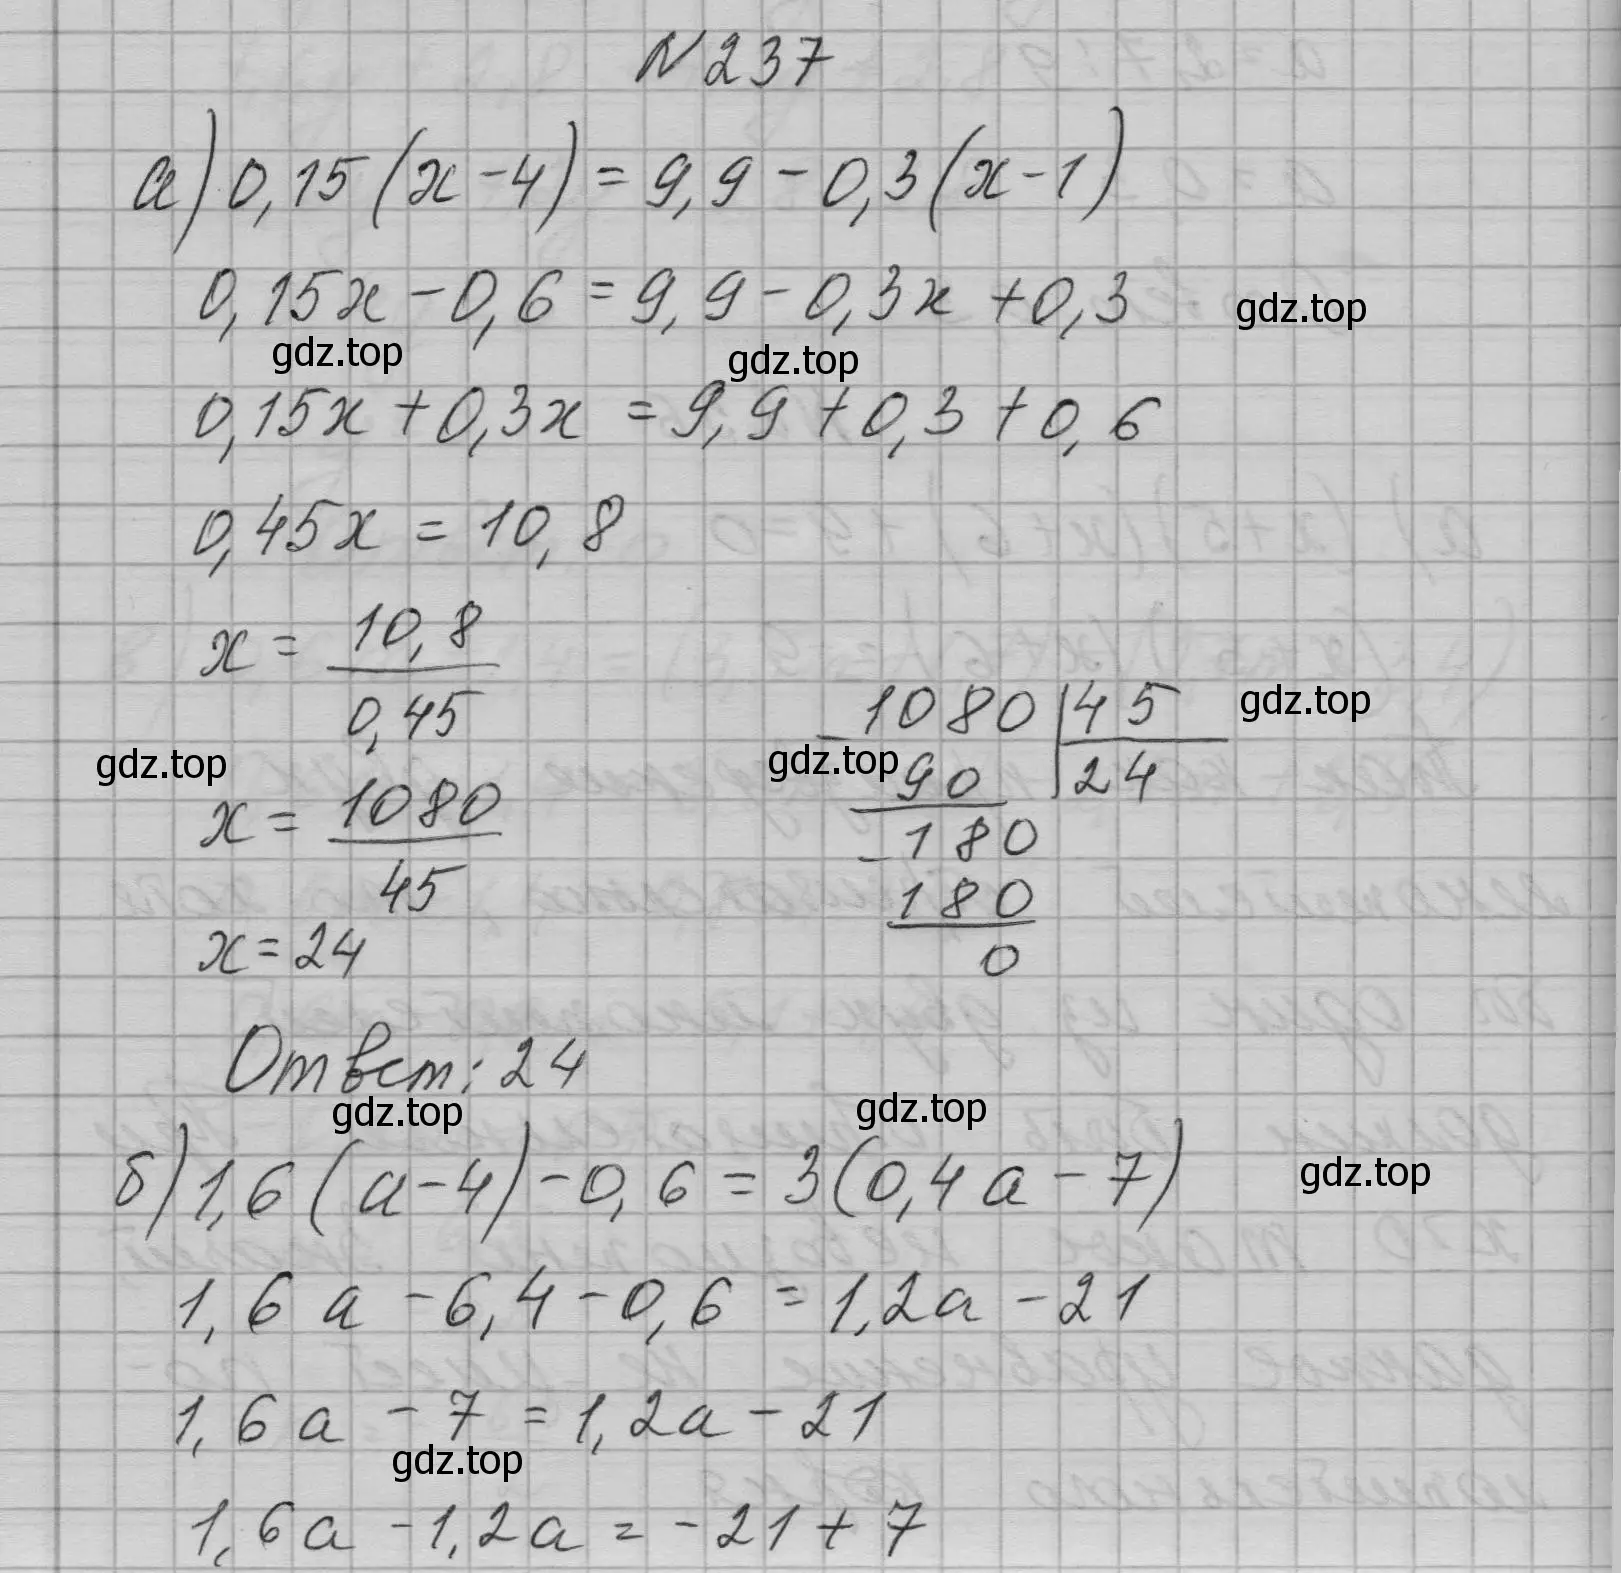 N 237
а) 0,15(x-4) = 9,9 - 0,3(x-1)
0,15x - 0,6 = 9,9 - 0,3x + 0,3
gdz.top
gdz.top gdz.top
0,15x + 0,3x = 9,9 + 0,3 + 0,6
0,45x = 10,8
x = 10,8
0,45
gdz.top
x = 1080
45
x = 24
- 1080 | 45 gdz.top
gdz.top 90 24
- 180
180
0
Ответ: 24
gdz.top gdz.top
б) 1,6(a-4) - 0,6 = 3(0,4a - 7) gdz.top
1,6a - 6,4 - 0,6 = 1,2a - 21
1,6a - 7 = 1,2a - 21
gdz.top
1,6a - 1,2a = -21 + 7